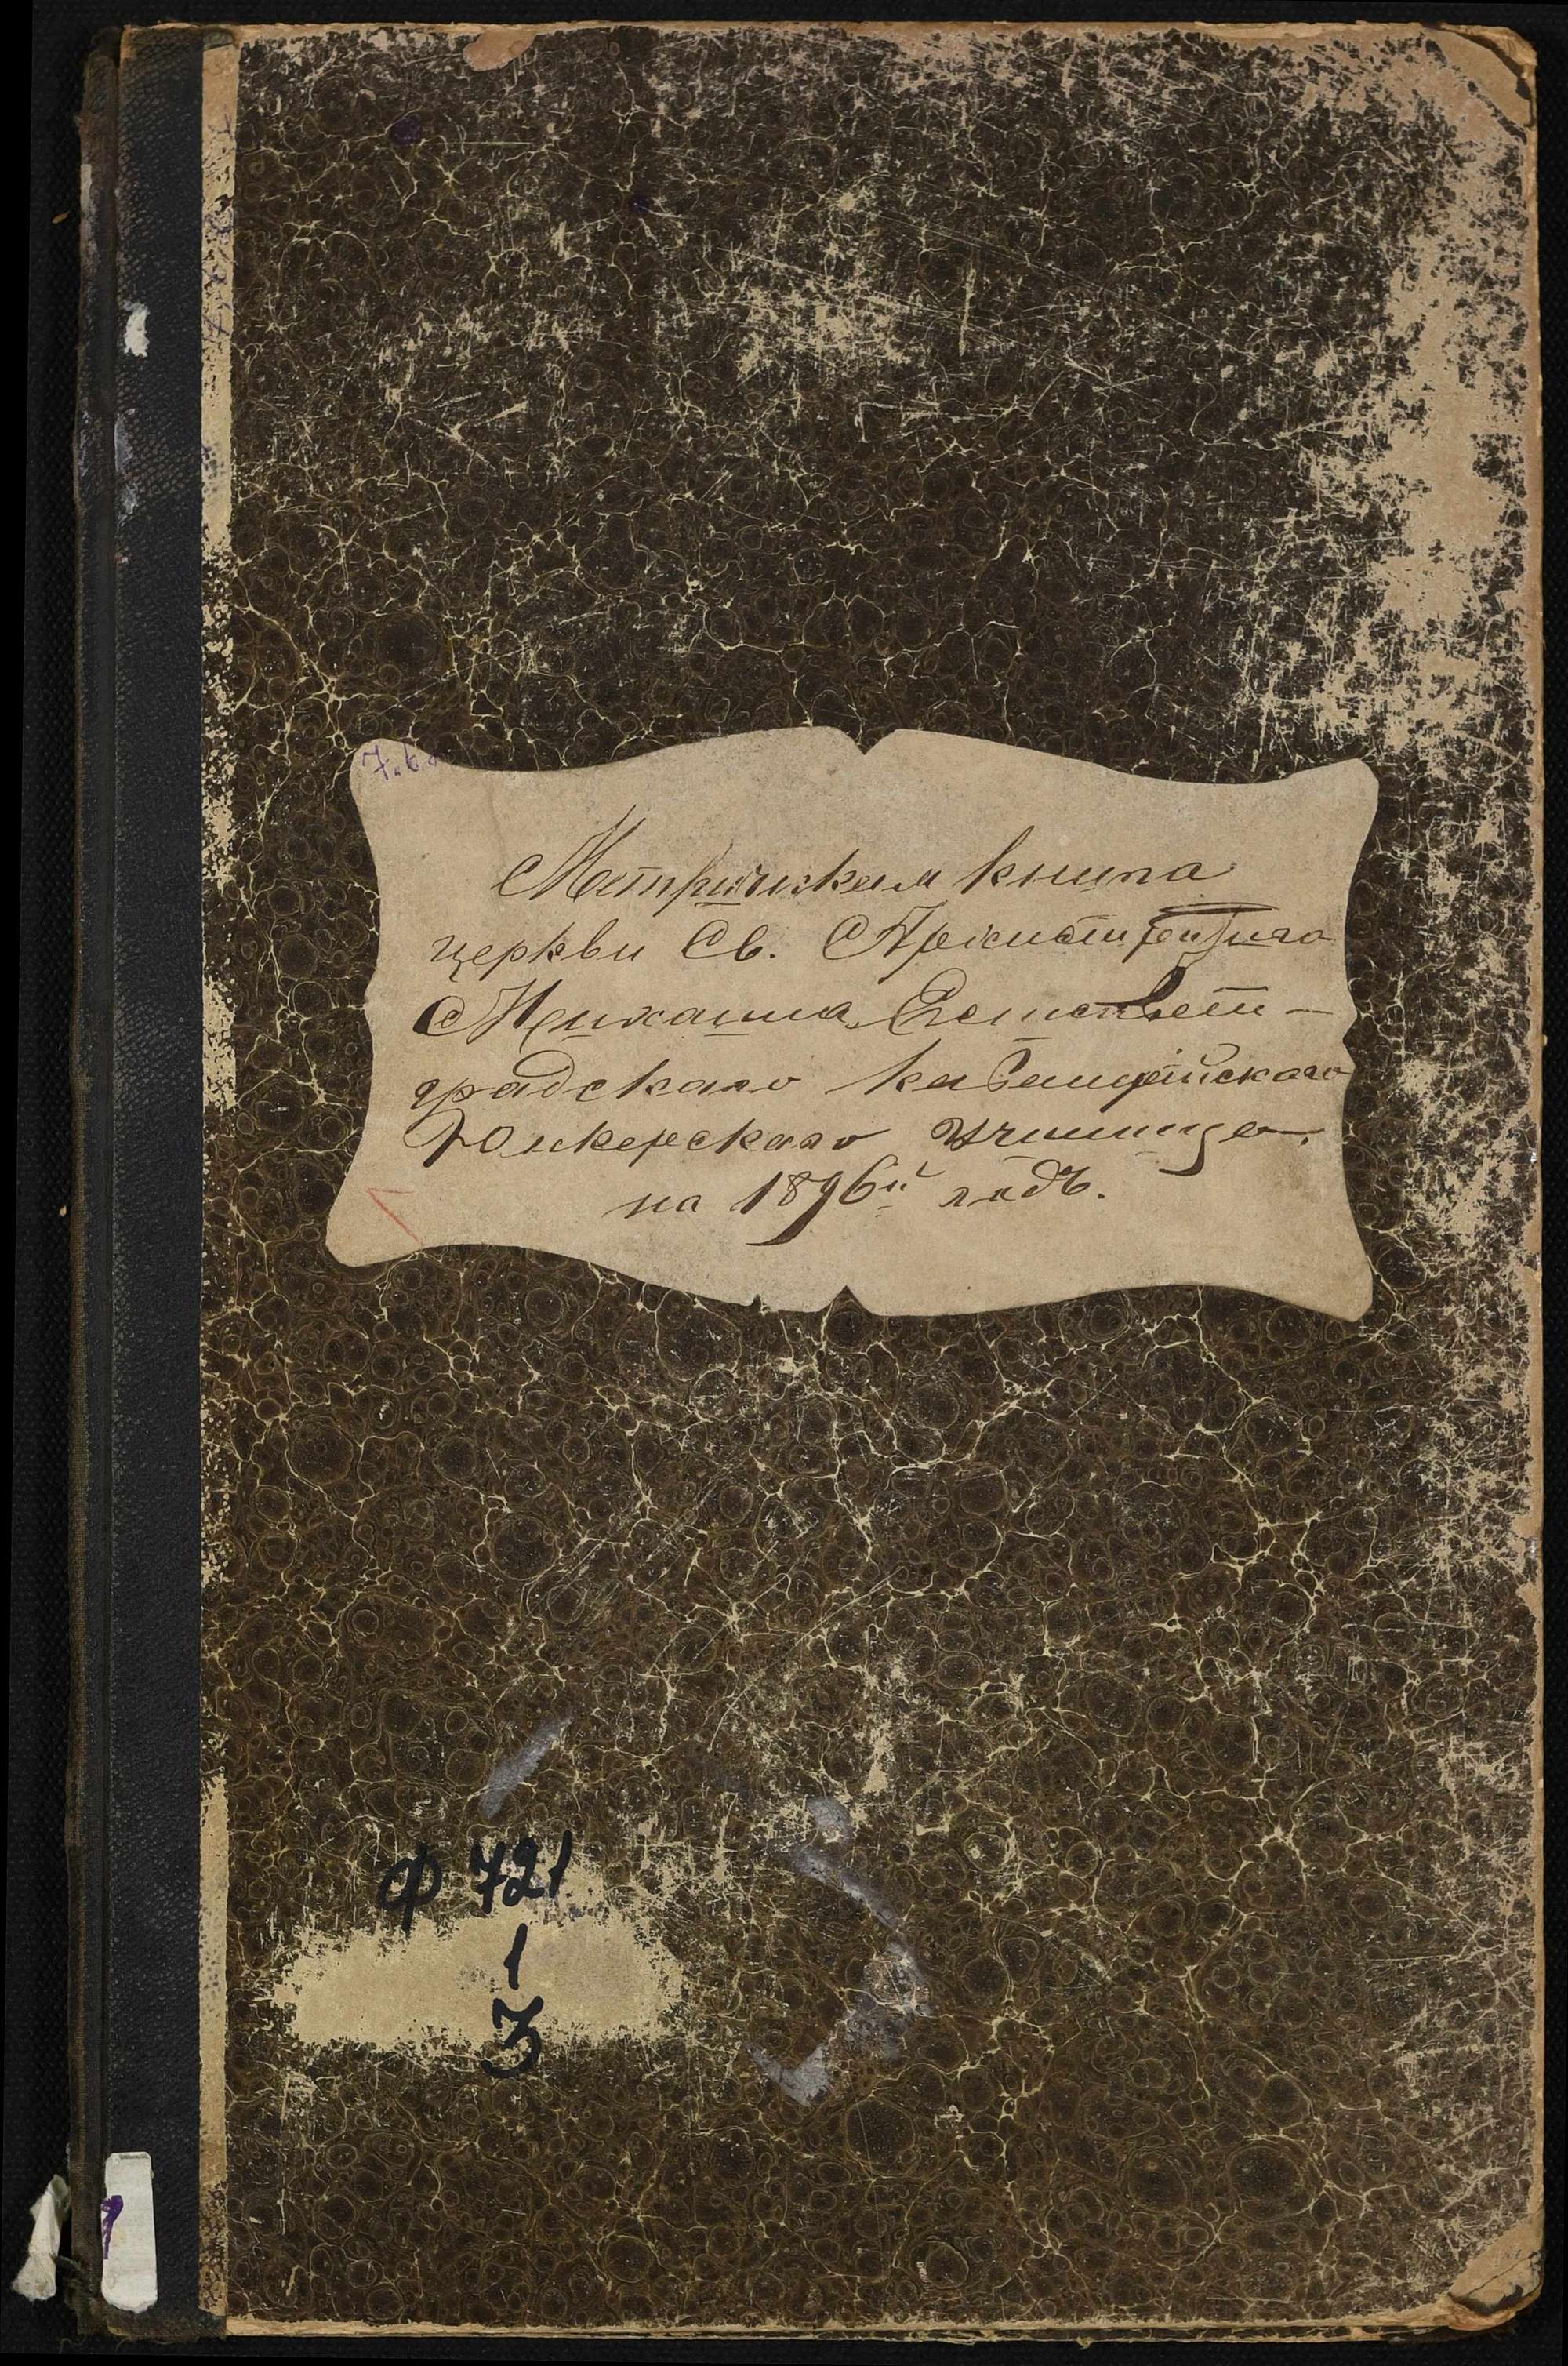 Метрическая книга
церкви Св. Архистратига
Михаила, Елисавет-
градскаго кавалерійскаго
Юнкерскаго Училища.
на 1896й годъ.
Ф 721
1
3